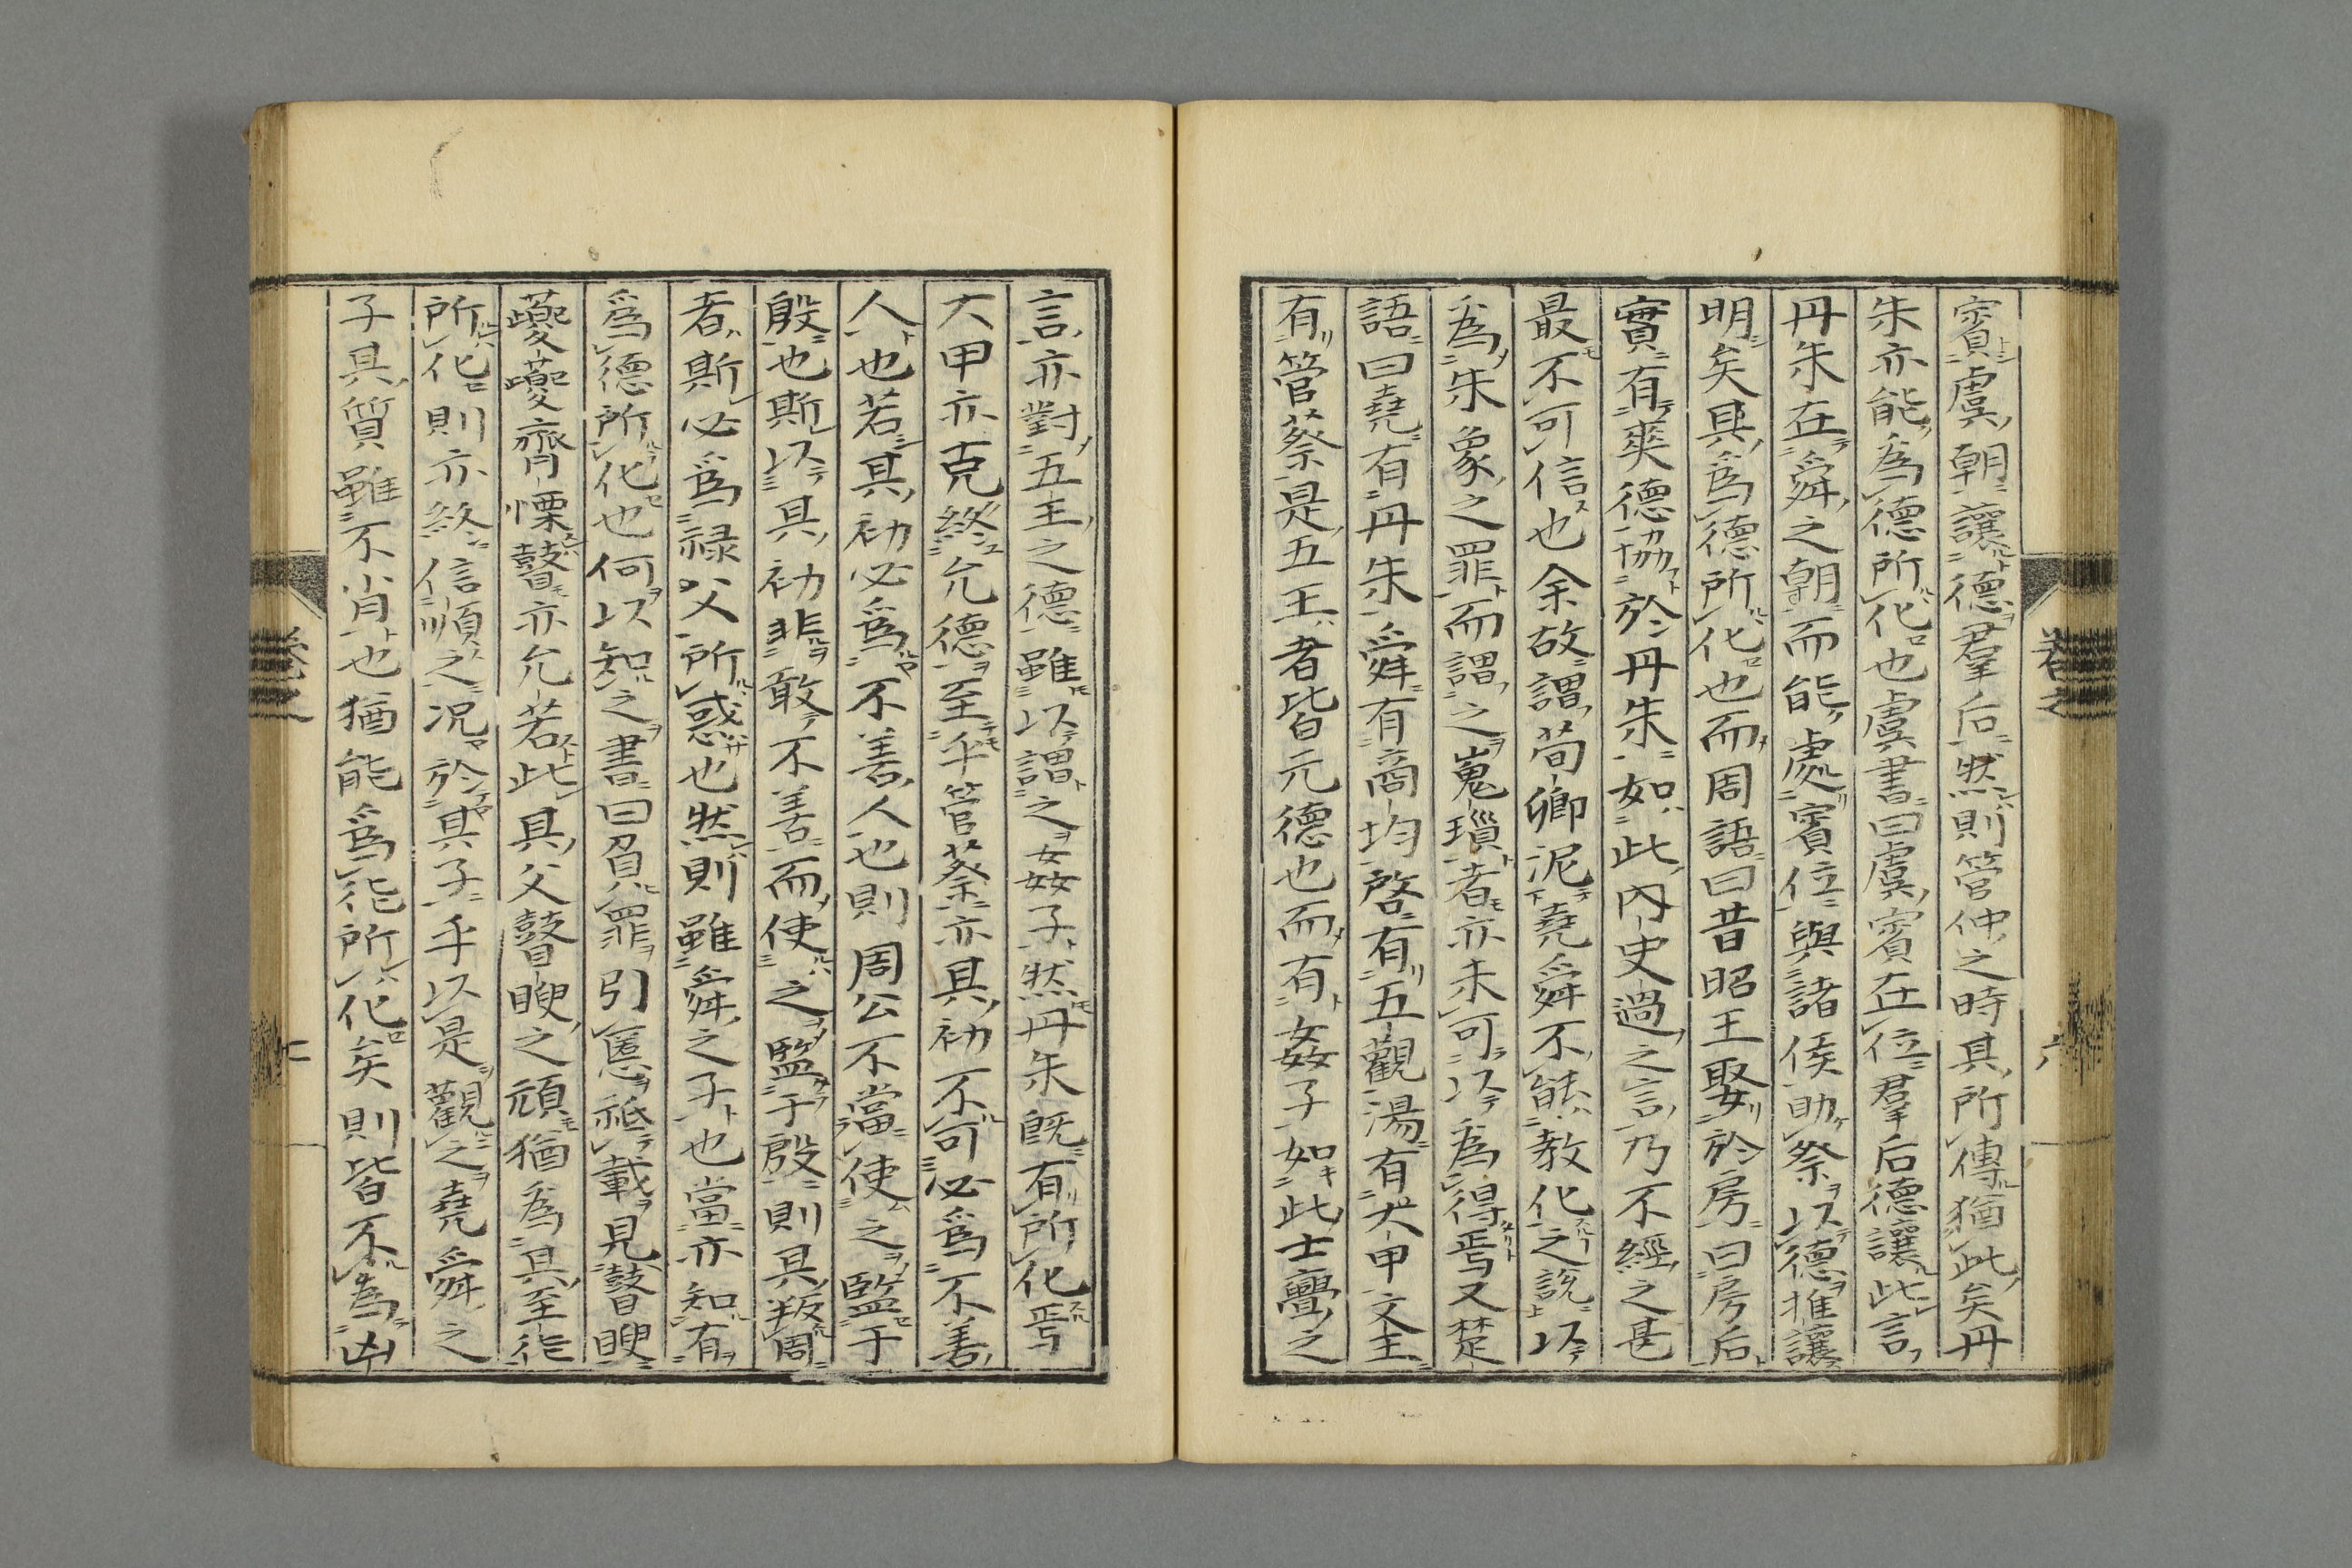 賓虞朝讓德羣后然則管仲之時其所傳猶此矣丹
朱亦能為德所化也虞書曰虞賓在位羣后德讓此言
丹朱在舜之朝而能處賓位與諸侯助祭以德推讓
明矣其為德所化也而周語曰昔昭王娶於房曰房后
實有爽德協於丹朱如此內史過之言乃不經之甚
最不可信也余故謂荀卿泥堯舜不能教化之說以
為朱象之罪而謂之嵬瑣者亦未可以為得焉又楚
語曰堯有丹朱舜有商均啓有五觀湯有大甲文王
有管蔡是五王者皆元德也而有姦子如此士亹之
言亦對五王之德雖以謂之姦子然丹朱既有所化焉
大甲亦克終允德至乎管蔡亦其初不可必為不善
人也若其初必為不善人也則周公不當使之監于
殷也斯以其初非敢不善而使之監于殷則其叛周
者斯必為祿父所惑也然則雖舜之子也當亦知有
為德所化也何以知之書曰負罪引慝祗載見瞽瞍
夔夔齊慄瞽亦允若此其父瞽瞍之頑猶為其至德
所化則亦終信順之況於其子乎以是觀之堯舜之
子其質雖不肖也猶能為德所化矣則皆不為凶
卷之
六
卷之
七